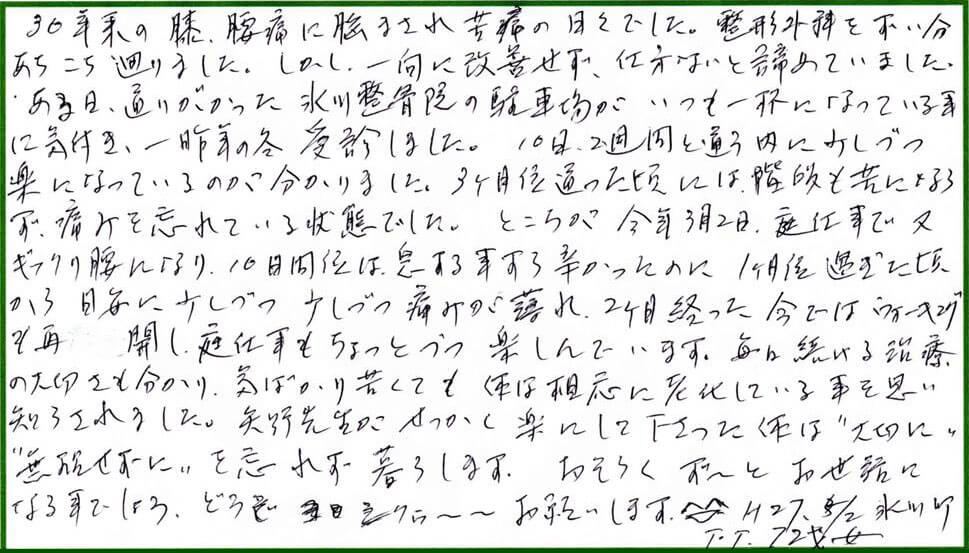 30年来の膝、腰痛に脳まされ苦痛の日々でした。整形外科をずい分
あちこち廻りました。しかし、一向に改善せず、仕方ないと諦めていました。
ある日、通りがかった氷川整骨院の駐車場がいつも一杯になっている事
に気付き、一昨年の冬受診しました。10日、2週間と通う内に少しづつ
楽になっているのが分かりました。3ヶ月位通った頃には、階段も苦になら
ず、痛みを忘れている状態でした。ところが今年3月2日、庭仕事で又
ギックリ腰になり、10日間位は、息する事すら辛かったのに1ヶ月位過ぎた頃
から日毎に少しづつ少しづつ痛みが薄れ、2ヶ月経った今ではウォーキング
も再開し、庭仕事もちょっとづつ楽しんでいます。毎日続ける治療
の大切さも分かり、気ばかり若くても体は相応に老化している事を思い
知らされました。矢野先生がせっかく楽にして下さった体は"大切に"
"無理せずに"を忘れず暮らします。おそらくず〜とお世話に
なる事でしょう、どうぞ〜〜お願いします。H27.5/2 氷川町
T.T. 72才 女